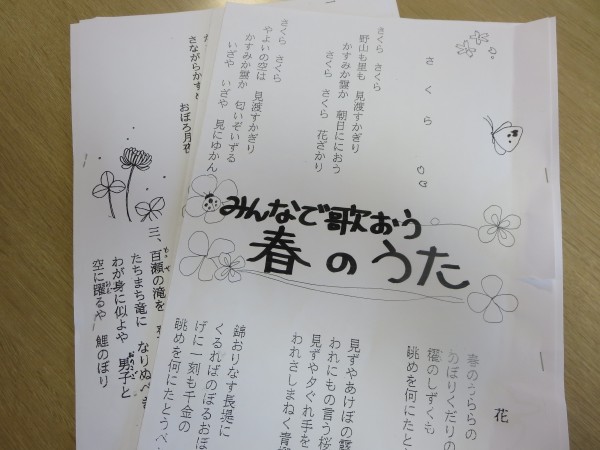 さくら
さくら さくら
野山も里も 見渡すかぎり
かすみか雲か 朝日ににおう
さくら さくら 花ざかり
さくら さくら
やよいの空は 見渡すかぎり
かすみか雲か 匂いぞいずる
いざや いざや 見にゆかん
みんなで歌おう
春のうた
花
春のうららの
のぼりくだりの
櫂のしずくも
眺めを何にたと
見ずやあけぼの露
われにもの言う桜
見ずや夕ぐれ手を
われさしまねく青
錦おりなす長堤に
くるればのぼるおぼ
げに一刻も千金の
眺めを何にたとうべ
さながらかす
おぼろ月夜
三、百瀬の滝を
たちまち竜に なりぬべ
わが身に似よや 男子と
空に躍るや 鯉のぼり